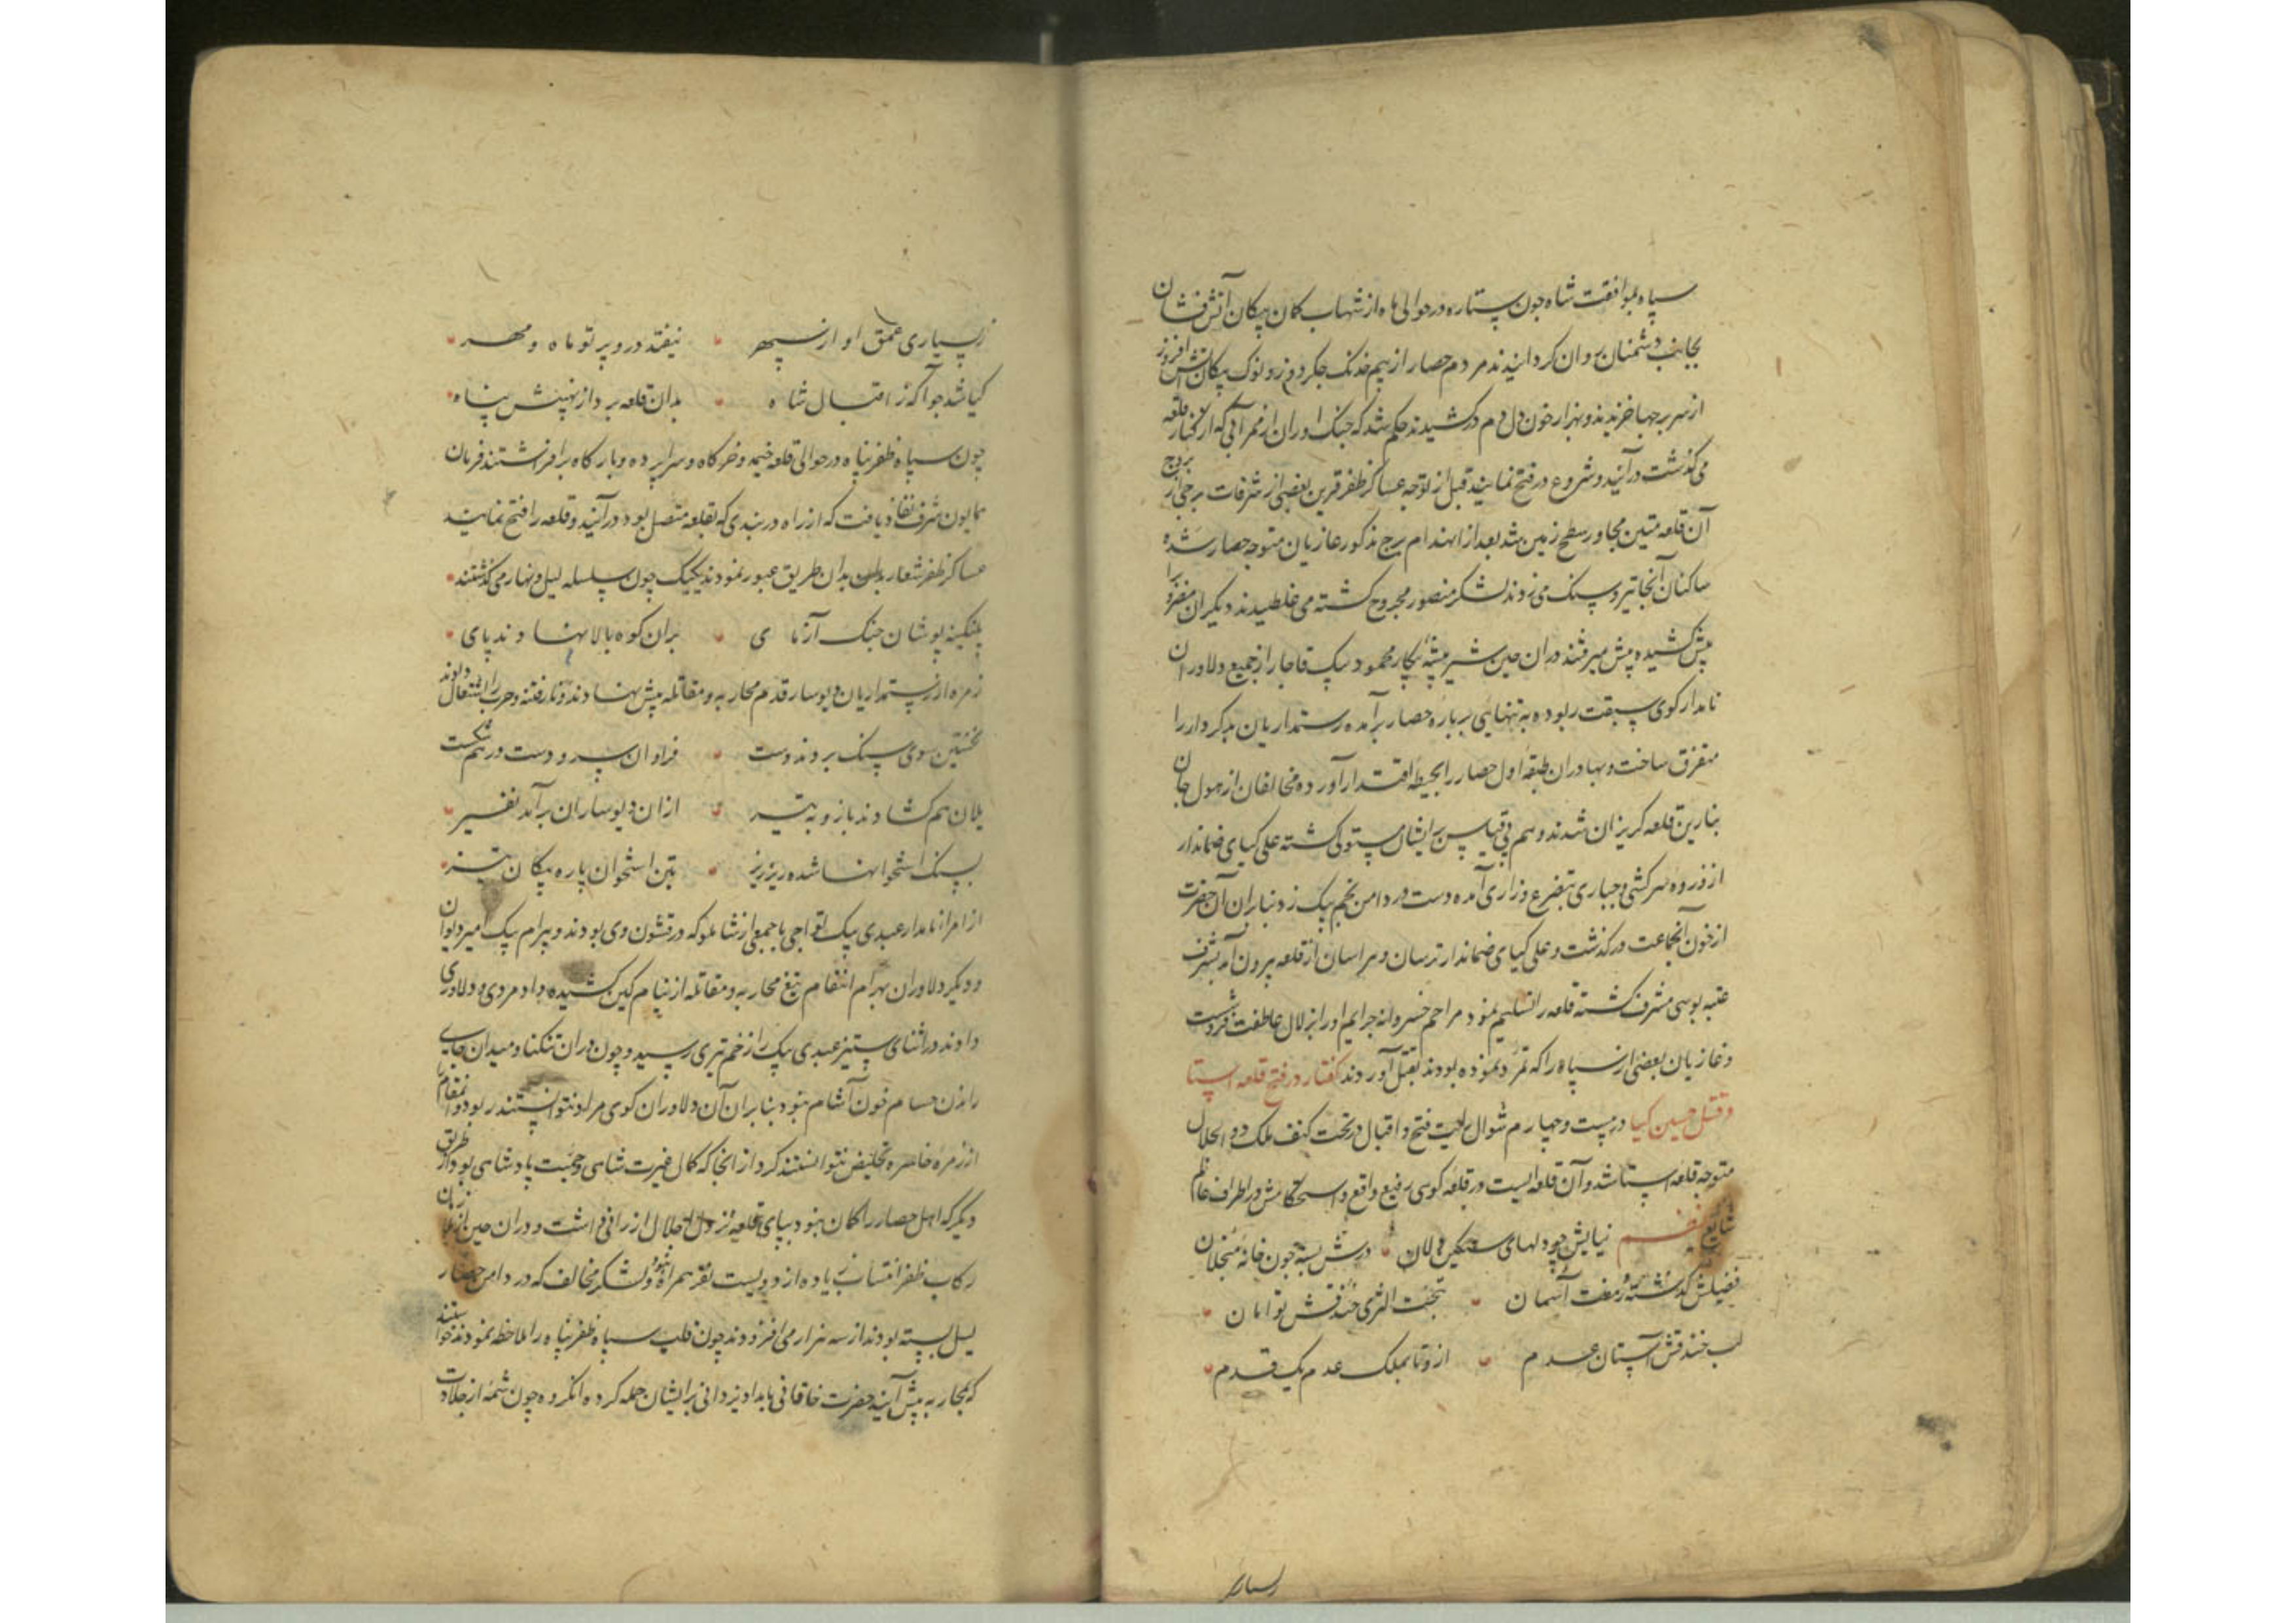 سپاه بموافقت شاه چون ستاره در حوالی ماه از شهاب کمان پیکان آتش فشان
بجانب دشمنان روان کردانیدند مردم حصار از بیم خدنک جکر دوز و نوک پیکان آتش افروز
از سر برجها خزیدند و بهزار خون دل دم در کشیدند حکم شد که جنک اوران از ممر آبی که از کنار قلعه
می کذشت درآیند و شروع در فتح نمایند قبل از توجه عساکر ظفر قرین بعضی از شرفات برجی از بروج
آن قلعه متین مجاور سطح زمین شد بعد از انهدام برج مذکور غازیان متوجه حصار شده
ساکنان آنجا تیر و سنک می زدند لشکر منصور مجروح کشته می غلطیدند دیکران را
پیش کشیده پیش میرفتند دران حین شیر بیشه پیکار محمود بیک قاجار از جمیع دلاوران
نامدار کوی سبقت ربوده به تنهایی بر باره حصار برآمده رستمداریان بدکردار را
متفرق ساخت و بهادران طبقه اول حصار را بحیطه اقتدار آورده مخالفان از هول جان
بنارین قلعه کریزان شدند و هم بی قیاس بر ایشان مستولی کشته علی کیای ضماندار
از ذروه سرکشی و جباری بتضرع و زاری آمده دست در دامن نجم بیک زد بنابران آن حضرت
از خون آنجماعت درکذشت و علی کیای ضماندار ترسان و هراسان از قلعه بیرون آمد بشرف
عتبه بوسی مشرف کشته قلعه را تسلیم نمود مراحم خسروانه جرایم او را بزلال عاطفت فروشست
و غازیان بعضی از سپاه را که تمرد نموده بودند بقتل آوردند کفتار در فتح قلعه استا
و قتل حسین کیا در بیست و چهارم شوال رایت فتح و اقبال در تحت کنف ملک ذو الجلال
متوجه قلعه استا شد و آن قلعه ایست در قله کوهی رفیع واقع و استحکامش در اطراف عالم
شایع نظم بنایش چو دلهای سنکین دلان درش بسته چون خانه منجلان
فصیلش کذشته ز هفت آسمان بتحت الثری خندقش توامان
لب خندقش آستان عدم ازو تا بملک عدم یک قدم
ز بسیاری عمق او از سپهر نیفتد درو پرتو ماه و مهر
کیا شد چو آکه ز اقبال شاه بدان قلعه برد از نهیبش پناه
چون سپاه ظفر پناه در حوالی قلعه خیمه و خرکاه و سراپرده و بارکاه برافراشتند فرمان
همایون شرف نفاذ یافت که از راه دربندی که بقلعه متصل بود درآیند و قلعه را فتح نمایند
عساکر ظفر شعار بدان طریق عبور نمودند یکیک چون سلسله لیل و نهار می کذشتند
پلنکینه پوشان جنک آزمای بران کوه بالا نهادند پای
زمره از رستمداریان دیوسار قدم محاربه و مقاتله پیش نهادند و نار فتنه و حرب را اشتعال دادند
نخستین سوی سنک بردند دست فراوان سر و دست درهم شکست
یلان هم کشادند بازو به تیر ازان دیوساران برآمد نفیر
بسنک استخوانها شده ریز ریز بتن استخوان پاره پیکان تیز
از امراء نامدار عبدی بیک تواجی با جمعی از شاملو که در قشون وی بودند و بیرام بیک امیر دیوان
و دیکر دلاوران بهرام انتقام تیغ محاربه و مقاتله از نیام کین کشیده داد مردی و دلاوری
دادند در اثنای ستیز عبدی بیک را زخم تیری رسید و چون دران تنکنا و میدان جای
راندن حسام خون آشام نبود بنابران آن دلاوران کوی مراد نتوانستند ربود و انتقام
از زمره خاسره تخلیص نتوانستند کرد از انجا که کمال غیرت شاهی و حمیت پادشاهی بود از طریق
دیکر که اهل حصار را کمان نبود بپای قلعه نزول اجلال ارزانی داشت و دران حین از ملازمان
رکاب ظفر انتساب زیاده از دویست نفر همراه نبود و لشکر مخالف که در دامن حصار
یسل بسته بودند از سه هزار می افزودند چون قلت سپاه ظفر پناه را ملاحظه نمودند خواستند
که بمحاربه پیش آیند حضرت خاقانی بامداد یزدانی بر ایشان حمله کرده انکروه چون شمه از جلادت